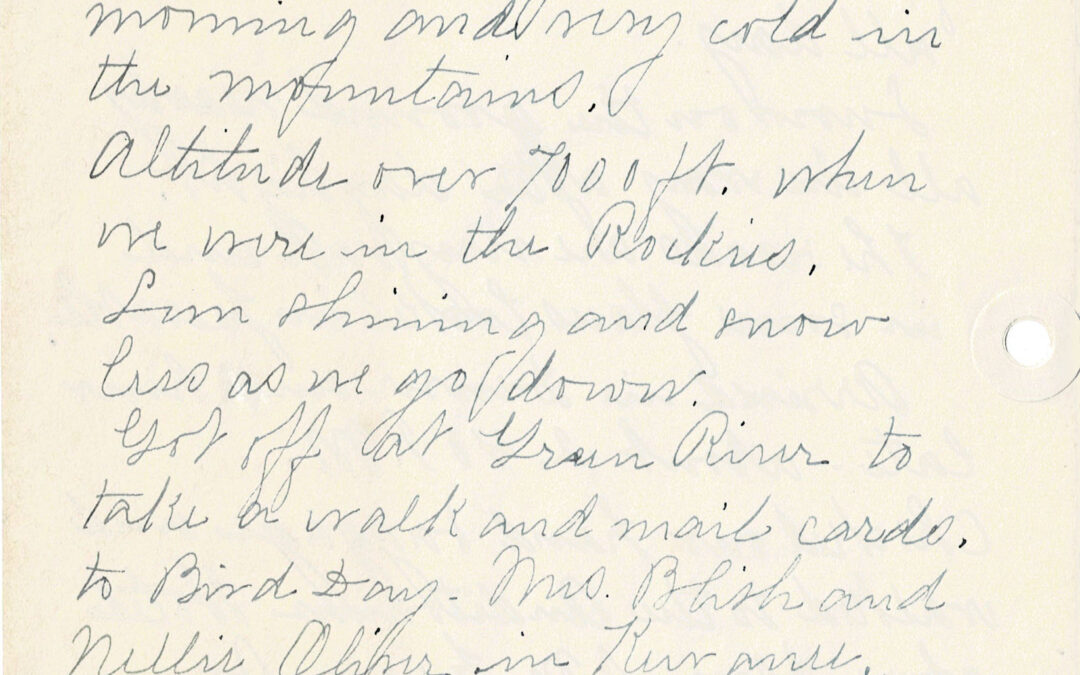 morning and very cold in
the mountains.
Altitude over 7000 ft. when
we were in the Rockies.
Sun shining and snow
less as we go down.
Got off at Green River to
take a walk and mail cards.
to Bird Day - Mrs. Blish and
Nellie Oliver in Kewanee.